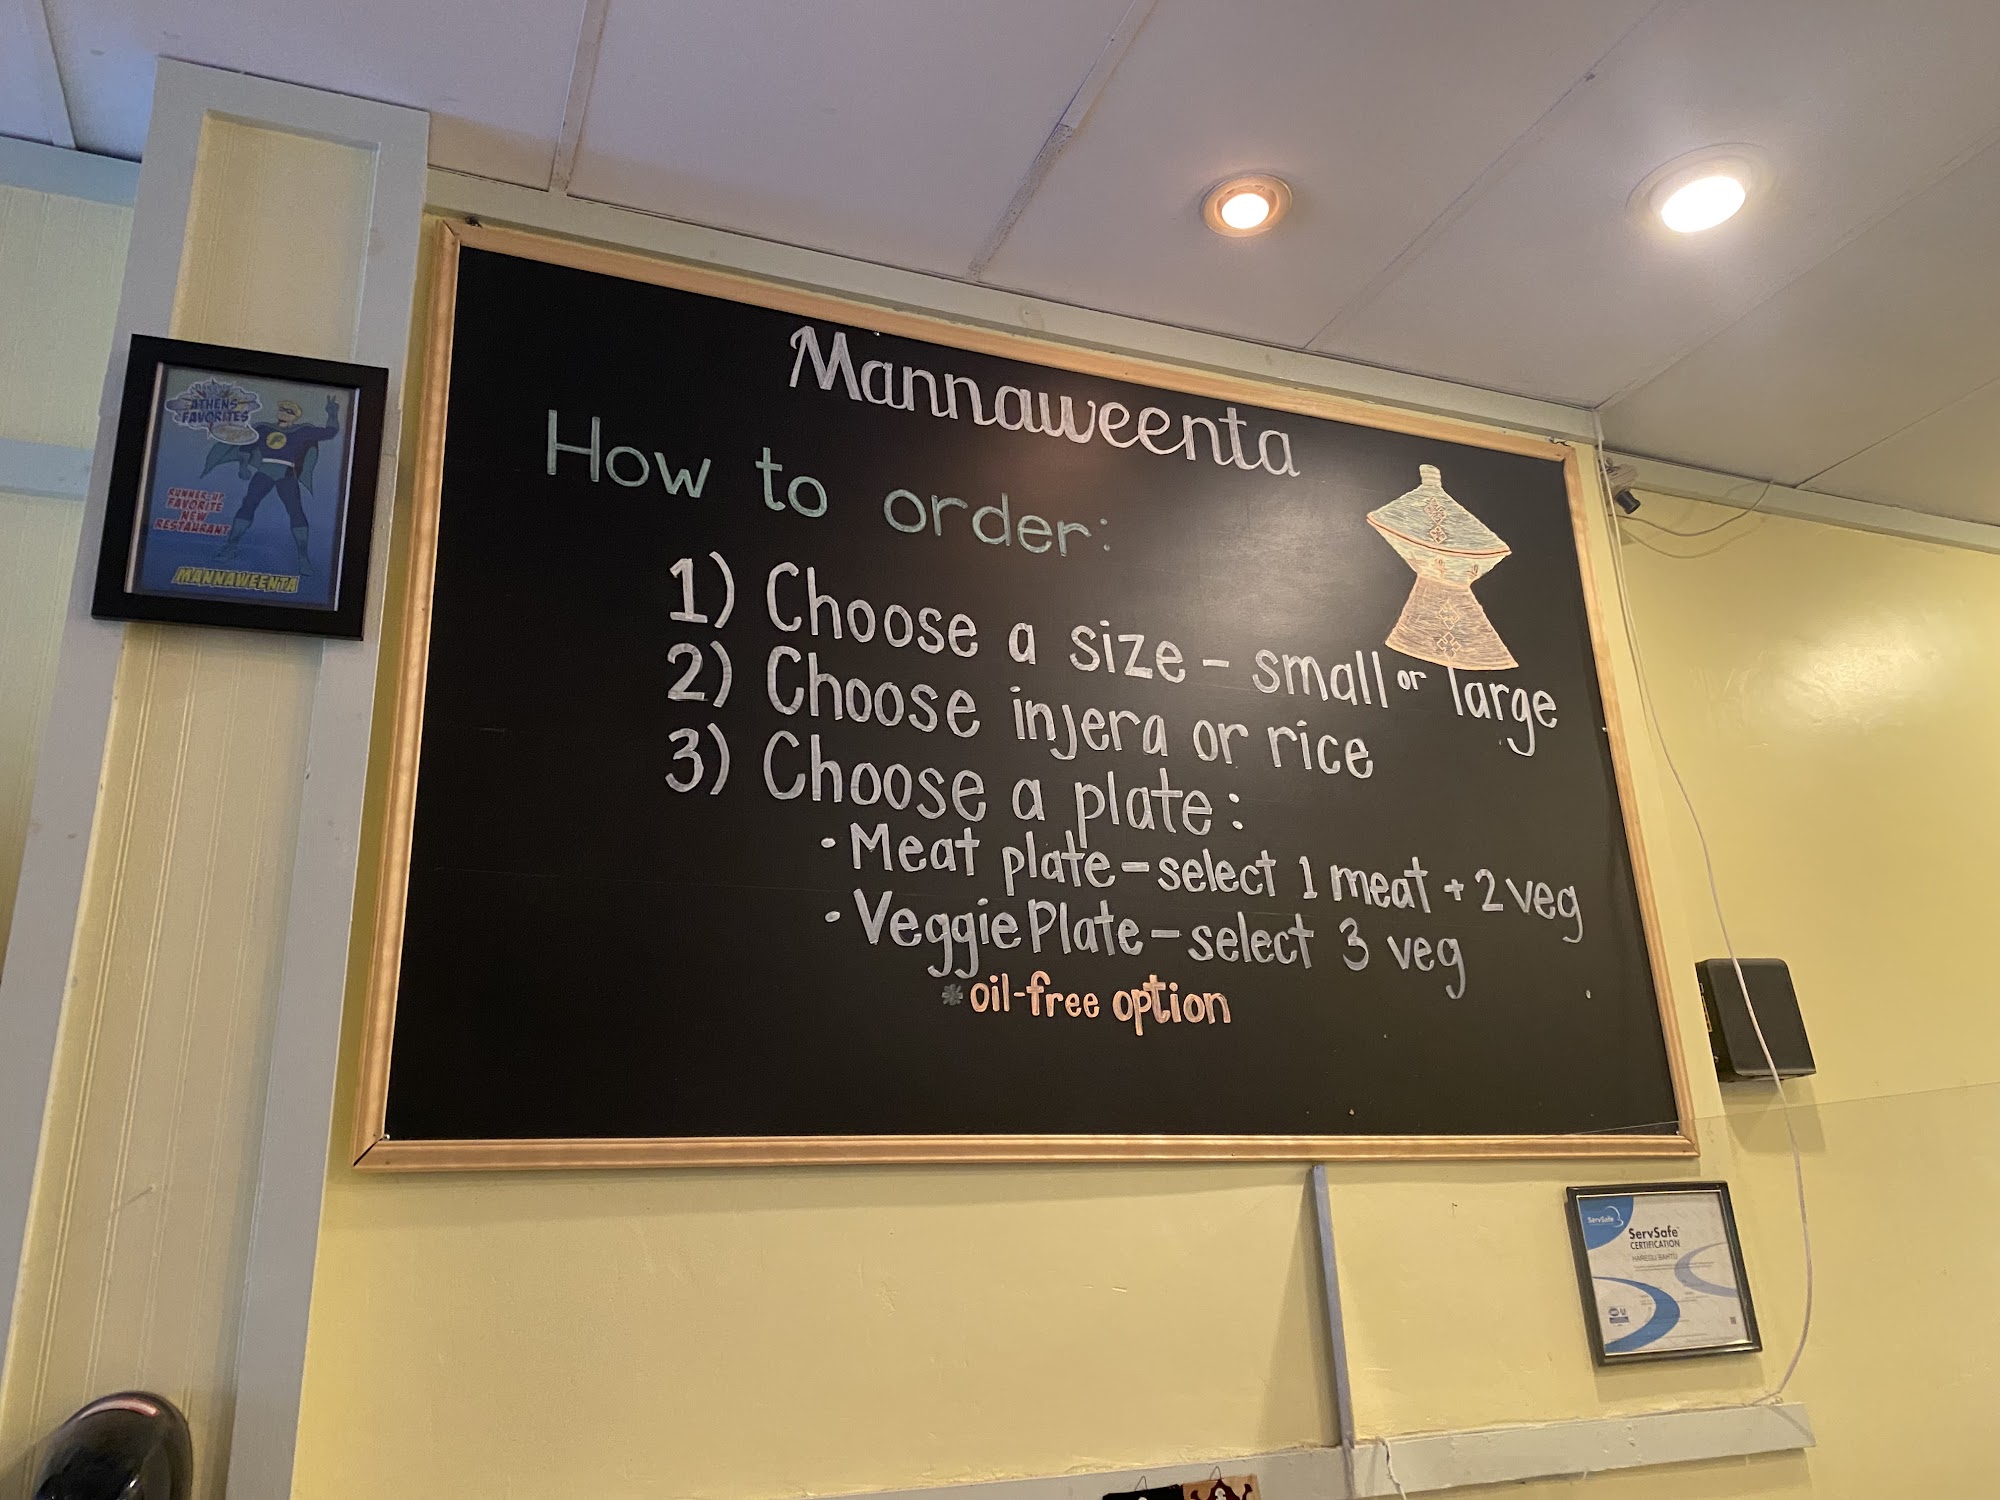 Mannaweenta
How to order:
1) Choose a size - small or large
2) Choose injera or rice
3) Choose a plate:
• Meat plate - select 1 meat + 2 veg
• Veggie Plate - select 3 veg
* oil-free option
ATHENS
FAVORITES
RUNNER-UP
FAVORITE
NEW
RESTAURANT
MANNAWEENTA
ServSafe
ServSafe
CERTIFICATION